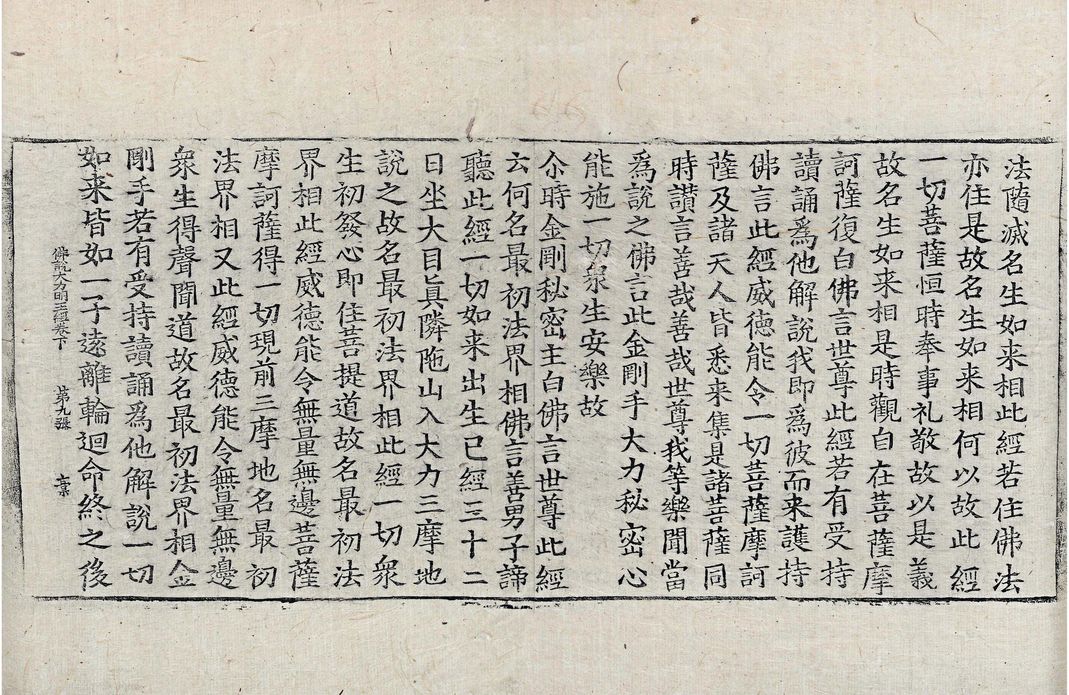 法隨滅名生如来相此經若住佛法
亦住是故名生如来相何以故此經
一切菩薩恒時奉事礼敬故以是義
故名生如来相是時觀自在菩薩摩
訶薩復白佛言世尊此經若有受持
讀誦爲他解說我即爲彼而来護持
佛言此經威德能令一切菩薩摩訶
薩及諸天人皆悉来集是諸菩薩同
時讃言善哉善哉世尊我等樂聞當
爲說之佛言此金剛手大力秘密心
能施一切衆生安樂故
尒時金剛秘密主白佛言世尊此經
云何名最初法界相佛言善男子諦
聽此經一切如来出生已經三十二
日坐大目真隣陁山入大力三摩地
說之故名最初法界相此經一切衆
生初發心即住菩提道故名最初法
界相此經威德能令無量無邊菩薩
摩訶薩得一切現前三摩地名最初
法界相又此經威德能令無量無邊
衆生得聲聞道故名最初法界相金
剛手若有受持讀誦爲他解說一切
如来皆如一子遠離輪迴命終之後
佛說大方明王經卷下 第九張